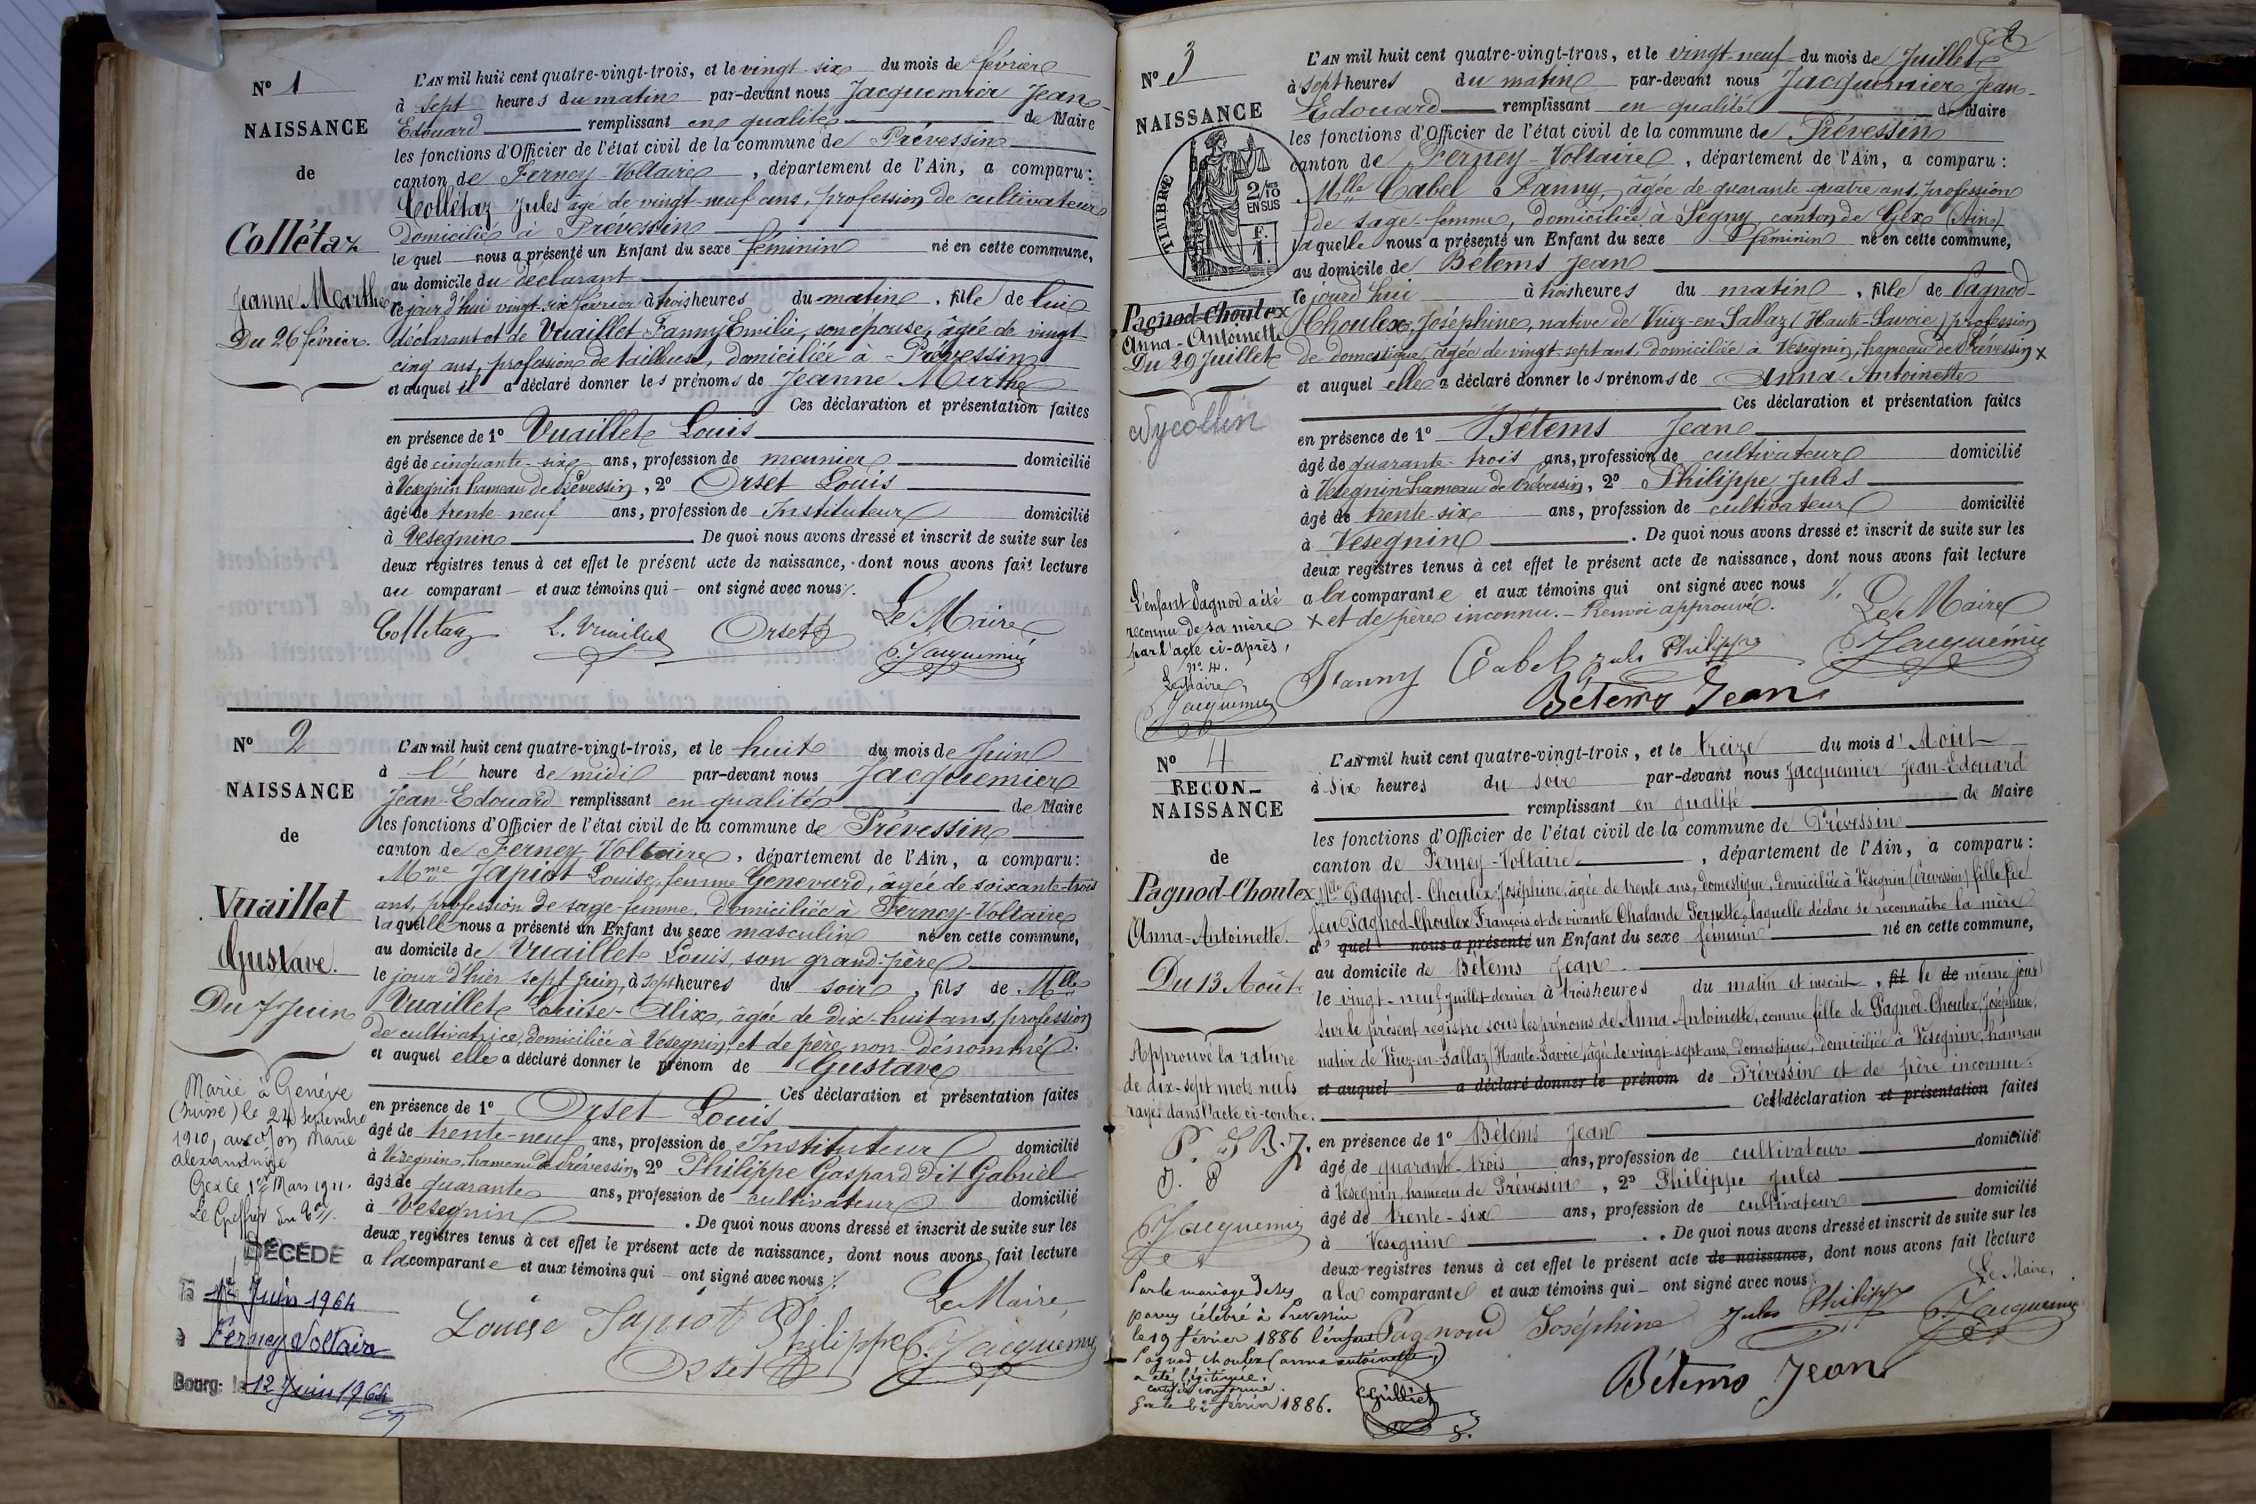 N° 1
NAISSANCE
de
Collétaz
Jeanne Marthe
Du 26 février.
L'AN mil huit cent quatre-vingt-trois, et le vingt-six du mois de février
à sept heures du matin par-devant nous Jacquemier Jean-
Edouard remplissant en qualité de Maire
les fonctions d'Officier de l'état civil de la commune de Prévessin
canton de Ferney-Voltaire, département de l'Ain, a comparu :
Collétaz Jules âgé de vingt-neuf ans, profession de cultivateur
domicilié à Prévessin
lequel nous a présenté un Enfant du sexe féminin né en cette commune,
au domicile du déclarant
ce jour d'hui vingt-six février à trois heures du matin, fille de lui
déclarant et de Vuaillet Fanny Emilie, son épouse, âgée de vingt-
cinq ans, profession de tailleuse, domiciliée à Prévessin
et auquel il a déclaré donner les prénoms de Jeanne Marthe
Ces déclaration et présentation faites
en présence de 1° Vuaillet Louis
âgé de cinquante-six ans, profession de meunier domicilié
à Vesegnin hameau de Prévessin, 2° Orset Louis
âgé de trente-neuf ans, profession de Instituteur domicilié
à Vesegnin. De quoi nous avons dressé et inscrit de suite sur les
deux registres tenus à cet effet le présent acte de naissance, dont nous avons fait lecture
au comparant et aux témoins qui ont signé avec nous.
Colletaz L. Vuaillet Orset Le Maire
Jacquemier
N° 2
NAISSANCE
de
Vuaillet
Gustave.
Du 7 Juin
L'AN mil huit cent quatre-vingt-trois, et le huit du mois de Juin
à l' heure de midi par-devant nous Jacquemier
Jean-Edouard remplissant en qualité de Maire
les fonctions d'Officier de l'état civil de la commune de Prévessin
canton de Ferney-Voltaire, département de l'Ain, a comparu :
Mme Japiot Louise, femme Genevard, âgée de soixante-trois
ans, profession de sage-femme, domiciliée à Ferney-Voltaire
laquelle nous a présenté un Enfant du sexe masculin né en cette commune,
au domicile de Vuaillet Louis, son grand-père
le jour d'hier sept juin, à sept heures du soir, fils de Mlle
Vuaillet Louise-Alix, âgée de dix-huit ans, profession
de cultivatrice, domiciliée à Vesegnin, et de père non dénommé.
et auquel elle a déclaré donner le prénom de Gustave
Ces déclaration et présentation faites
en présence de 1° Orset Louis
âgé de trente-neuf ans, profession de Instituteur domicilié
à Vesegnin, hameau de Prévessin, 2° Philippe Gaspard dit Gabriel
âgé de quarante ans, profession de cultivateur domicilié
à Vesegnin. De quoi nous avons dressé et inscrit de suite sur les
deux registres tenus à cet effet le présent acte de naissance, dont nous avons fait lecture
a la comparante et aux témoins qui ont signé avec nous
Le Maire,
Louise Japiot Philippe Jacquemier
Orset
Marié à Genève
(Suisse) le 24 septembre
1910, avec Marie
alexandrine
Gex le 1er Mars 1911.
Le Greffier
DÉCÉDÉ
le 1er Juin 1964
à Ferney Voltaire
Bourg; le 12 Juin 1964
N° 3
NAISSANCE
TIMBRE
2/10
EN SUS
F.
1
Pagnod-Choulex
Anna-Antoinette
Du 29 Juillet
L'AN mil huit cent quatre-vingt-trois, et le vingt-neuf du mois de Juillet
à sept heures du matin par-devant nous Jacquemier Jean-
Edouard remplissant en qualité de Maire
les fonctions d'Officier de l'état civil de la commune de Prévessin
canton de Ferney-Voltaire, département de l'Ain, a comparu :
Mlle Cabel Fanny, âgée de quarante-quatre ans, profession
de sage-femme, domiciliée à Segny, canton de Gex (Ain)
laquelle nous a présenté un Enfant du sexe féminin né en cette commune,
au domicile de Bétems Jean
ce jourd'hui à trois heures du matin, fille de Pagnod-
Choulex, Joséphine, native de Viuz-en-Sallaz (Haute-Savoie) profession
de domestique, âgée de vingt-sept ans, domiciliée à Vesegnin, hameau de Prévessin x
et auquel elle a déclaré donner les prénoms de Anna Antoinette
Ces déclaration et présentation faites
en présence de 1° Bétems Jean
âgé de quarante-trois ans, profession de cultivateur domicilié
à Vesegnin hameau de Prévessin, 2° Philippe Jules
âgé de trente-six ans, profession de cultivateur domicilié
à Vesegnin. De quoi nous avons dressé et inscrit de suite sur les
deux registres tenus à cet effet le présent acte de naissance, dont nous avons fait lecture
a la comparante et aux témoins qui ont signé avec nous
x et de père inconnu. - Renvoi approuvé. Le Maire
Fanny Cabel Jules Philippe Jacquemier
Bétems Jean
L'enfant Pagnod a été
reconnu de sa mère
par l'acte ci-après,
n° 4.
Le Maire,
Jacquemier
N° 4
RECON-
NAISSANCE
de
Pagnod-Choulex
Anna-Antoinette.
Du 13 Août.
L'AN mil huit cent quatre-vingt-trois, et le treize du mois d'Août
à six heures du soir par-devant nous Jacquemier Jean-Edouard
remplissant en qualité de Maire
les fonctions d'Officier de l'état civil de la commune de Prévessin
canton de Ferney-Voltaire, département de l'Ain, a comparu :
Mlle Pagnod-Choulex Joséphine, âgée de trente ans, domestique, domiciliée à Vésegnin (Prévessin) fille de
feu Pagnod-Choulex François et de vivante Chalande Pernette, laquelle déclare se reconnaître la mère
d' quel nous a présenté un Enfant du sexe féminin né en cette commune,
au domicile de Bétems Jean
le vingt-neuf Juillet dernier à trois heures du matin et inscrit, fil le de même jour
sur le présent registre sous les prénoms de Anna Antoinette, comme fille de Pagnod-Choulex, Joséphine,
native de Viuz-en-Sallaz (Haute-Savoie) âgée de vingt-sept ans, domestique, domiciliée à Vésegnin, hameau
et auquel a déclaré donner le prénom de Prévessin et de père inconnu.
Cette déclaration et présentation faites
en présence de 1° Bétems Jean
âgé de quarante-trois ans, profession de cultivateur domicilié
à Vesegnin, hameau de Prévessin, 2° Philippe Jules
âgé de trente-six ans, profession de cultivateur domicilié
à Vesegnin. De quoi nous avons dressé et inscrit de suite sur les
deux registres tenus à cet effet le présent acte de naissance, dont nous avons fait lecture
a la comparante et aux témoins qui ont signé avec nous Le Maire,
Pagnoud Joséphine Jules Philippe Jacquemier
Bétems Jean
Approuvé la rature
de dix-sept mots nuls
rayés dans l'acte ci-contre.
P. J B. J.
J. P
Jacquemier
Par le mariage de ses
parents célébré à Prévessin
le 19 février 1886 l'enfant
Pagnod Choulex (anna antoinette)
a été légitimée.
1886.